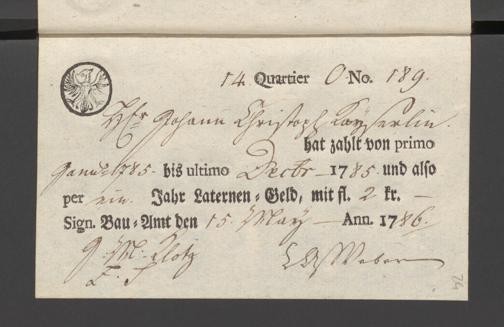 14. Quartier O No. 189.
Hr Johann Christoph Kayserlin
hat zahlt von primo
Januar 1785. bis ultimo Decbr 1785. und also
per ein Jahr Laternen-Geld, mit fl. 2 kr. —
Sign. Bau-Amt den 15. May — Ann. 1786.
J. M.
Weber
24